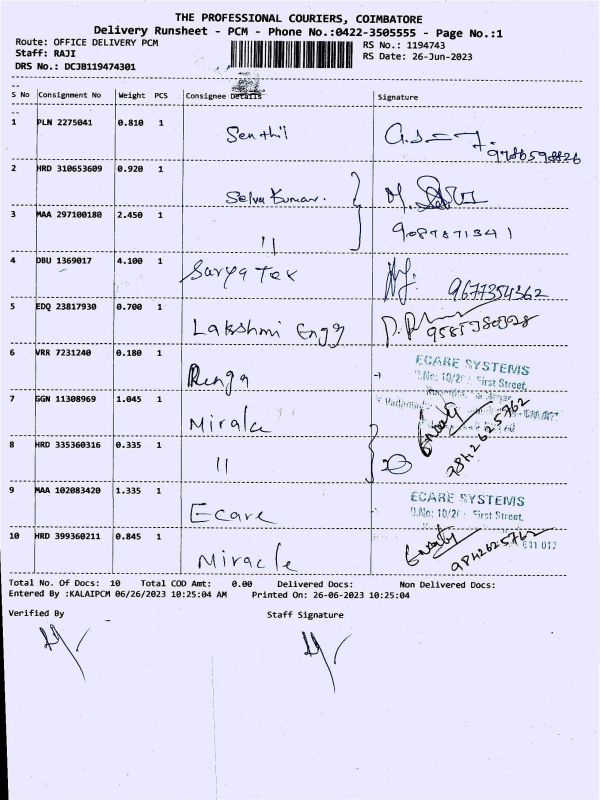 THE PROFESSIONAL COURIERS, COIMBATORE
Delivery Runsheet - PCM - Phone No.:0422-3505555 - Page No.:1
Route: OFFICE DELIVERY PCM
RS No.: 1194743
Staff: RAJI
RS Date: 26-Jun-2023
DRS No.: DCJB119474301
S No Consignment No Weight PCS Consignee Details Signature
1 PLN 2275041 0.810 1 Senthil
2 HRD 310653609 0.920 1 Selva Kumar.
3 MAA 297100180 2.450 1 11 9087871341
4 DBU 1369017 4.100 1 Surya Tex 9677354362
5 EDQ 23817930 0.700 1 Lakshmi Engg
6 VRR 7231240 0.180 1 Renga ECARE SYSTEMS
First Street,
7 GGN 11308969 1.045 1 9842625762
8 HRD 335360316 0.335 1 11
9 MAA 102083420 1.335 1 Ecare ECARE SYSTEMS
First Street,
10 HRD 399360211 0.845 1 Miracle 9842625762
Total No. Of Docs: 10 Total COD Amt: 0.00 Delivered Docs: Non Delivered Docs:
Entered By :KALAIPCM 06/26/2023 10:25:04 AM Printed On: 26-06-2023 10:25:04
Verified By Staff Signature